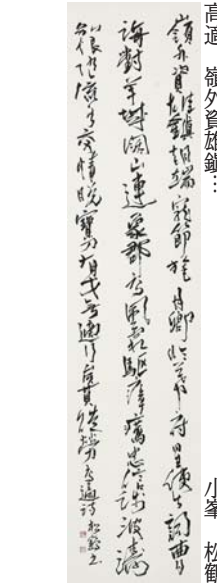 高適 嶺外資雄鎮…
小峯 松鶴
嶺外資雄鎮朝端寵節旄月卿臨幕府星使出詞曹
海對羊城闊山連象郡高風霜驅瘴癘忠信涉波濤
別恨隨流水交情脱寶刀有才無不適行矣莫徒勞 高適詩 松鶴書